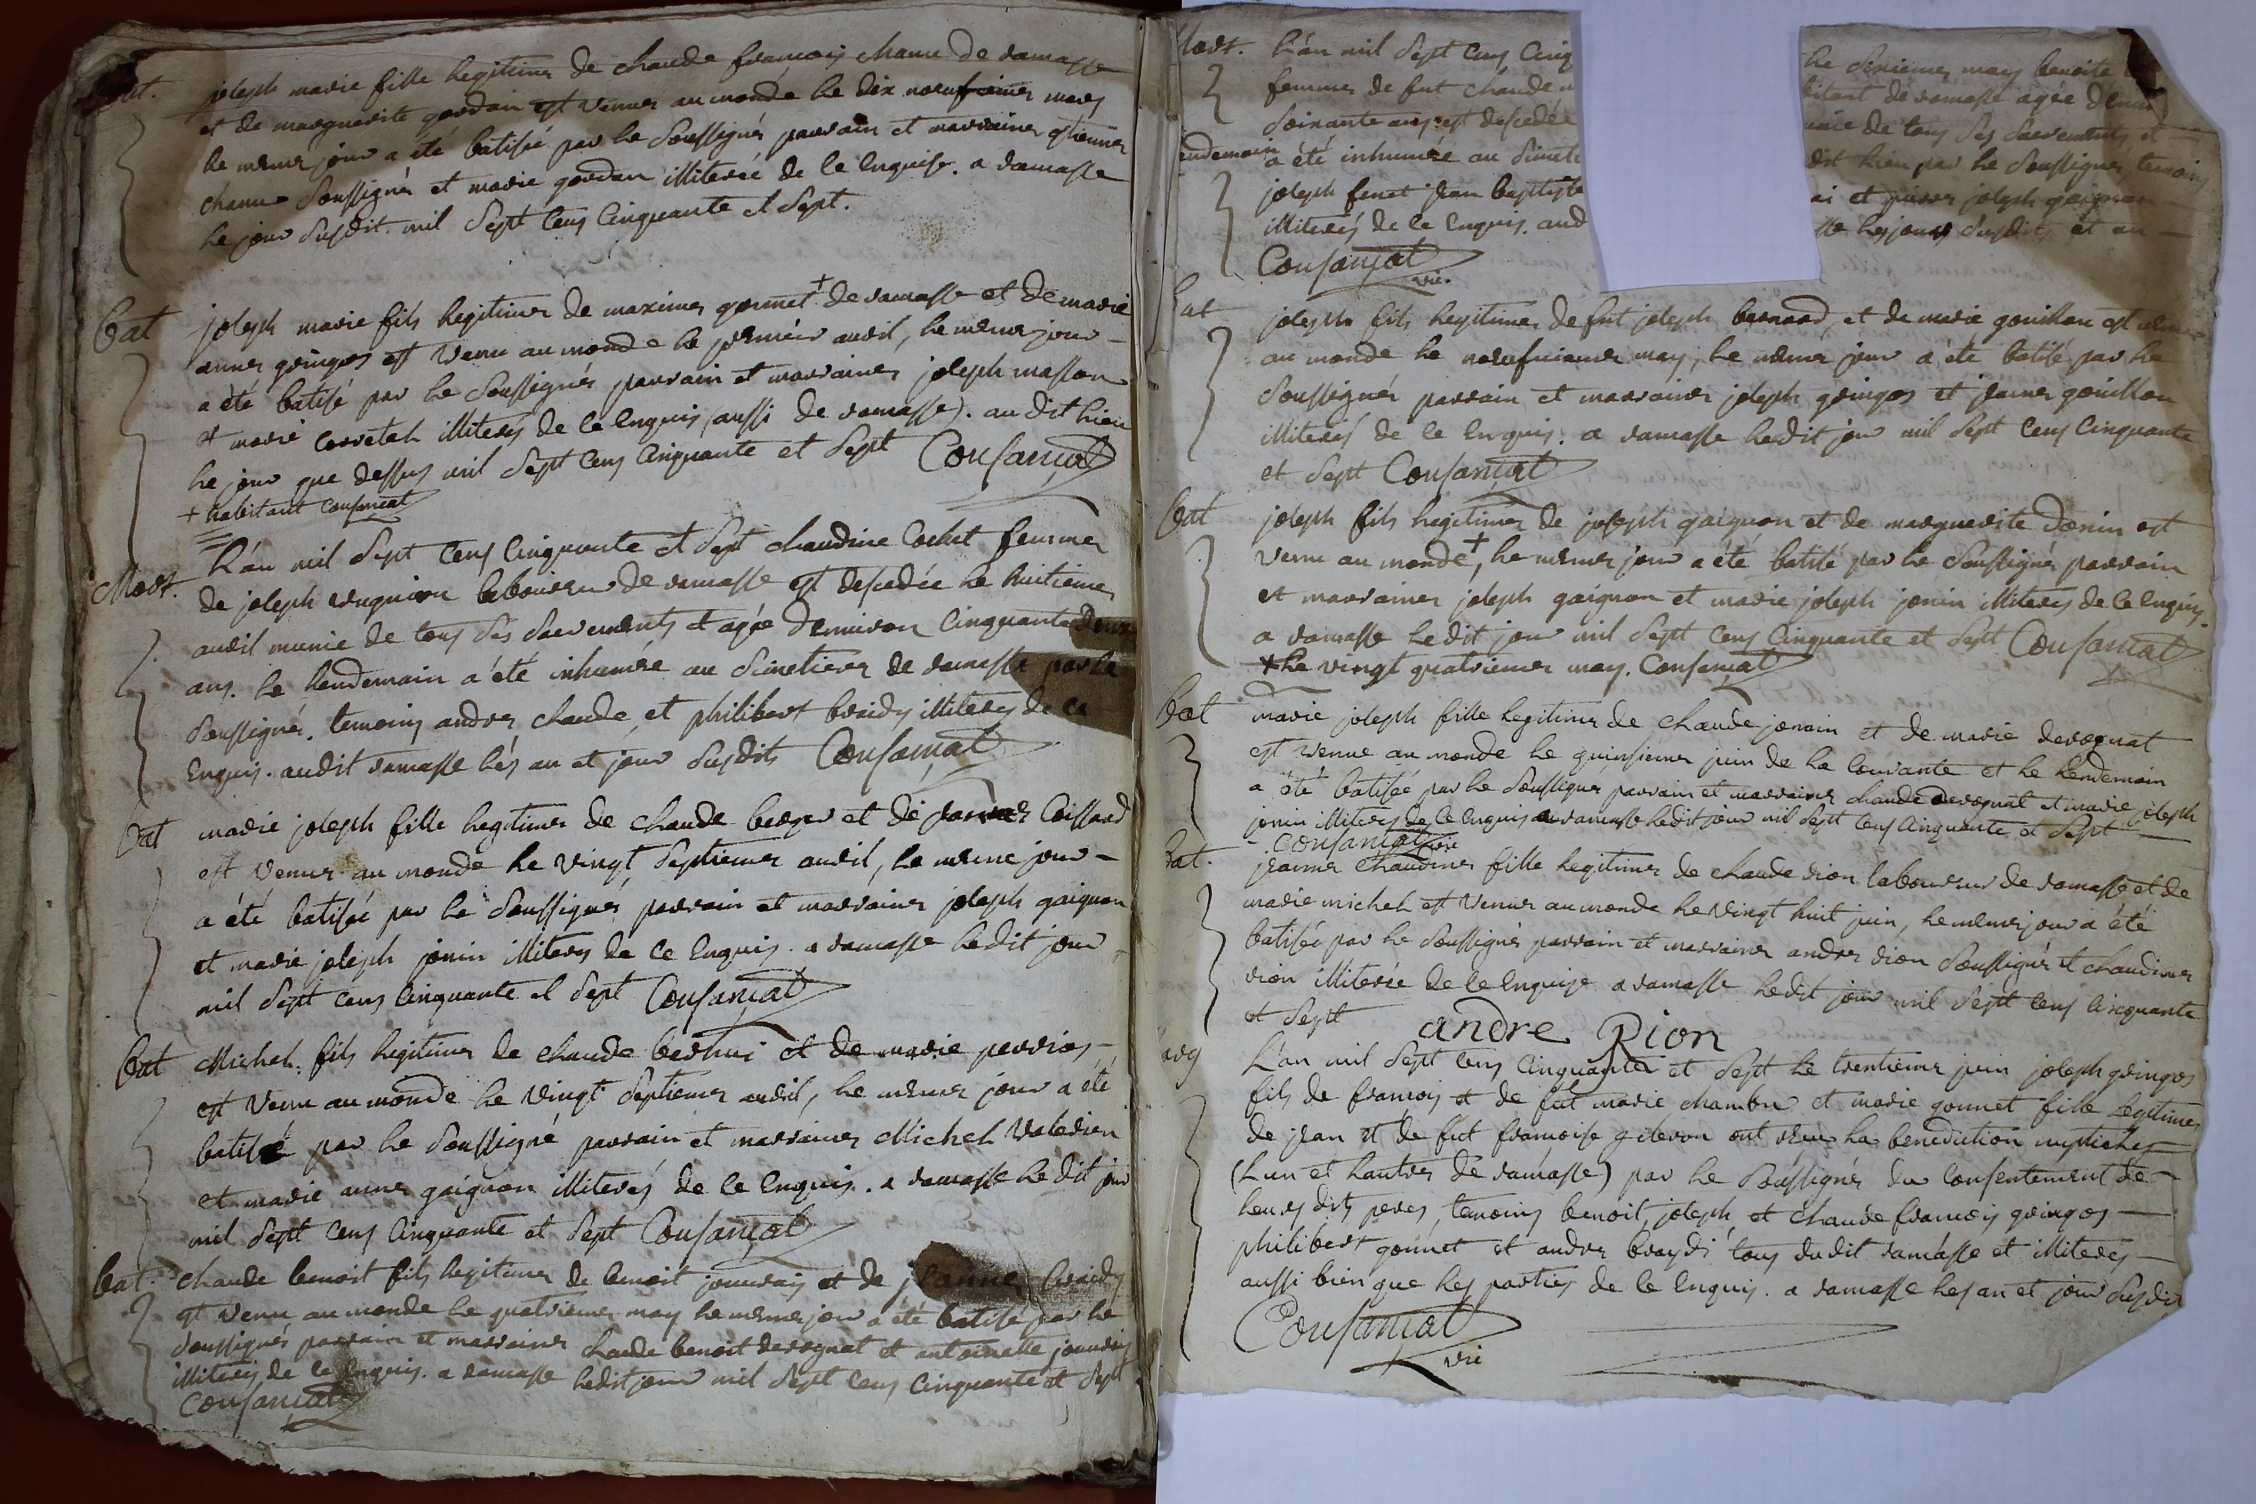 bat. joseph marie fille legitime de claude francois chanu de ramasse
et de marguerite gordan est venue au monde le dix neufvieme mars
le meme jour a été batisée par le soussigné parrain et marraine etienne
chanu soussigné et marie gordan illiterée de ce enquise. a ramasse
le jour susdit. mil sept cens cinquante et sept.
bat joseph marie fils legitime de maxime gonnet + de ramasse et de marie
anne gringos est venu au monde le premier avril, le meme jour
a été batisé par le soussigné parrain et marraine joseph masson
et marie corretel illiterés de ce enquis (aussi de ramasse). au dit lieu
le jour que dessus mil sept cens cinquante et sept Cousançat
+ habitant Cousançat
Mort. L'an mil sept cens cinquante et sept claudine cochet femme
de joseph laboureur de ramasse est descedée le huitieme
avril munie de tous ses sacrements et agée d'environ cinquante deux
ans. le lendemain a été inhumée au simetiere de ramasse par le
soussigné. temoins andre, claude, et philibert braidy illiterés de ce
enquis. audit ramasse les an et jour susdits Cousançat
bat marie joseph fille legitime de claude berger et de jeanne Coissard
est venue au monde le vingt septieme avril, le meme jour
a été batisée par le soussigné parrain et marraine joseph gaignon
et marie joseph jonin illiterés de ce enquis. a ramasse le dit jour
mil sept cens cinquante et sept Cousançat
bat Michel fils legitime de claude berhui et de marie perrier
est venu au monde le vingt septieme avril, le meme jour a été
batisé par le soussigné parrain et marraine Michel Valerien
et marie anne gaignon illiterés de ce enquis. a ramasse le dit jour
mil sept cens cinquante et sept Cousançat
bat. claude benoit fils legitime de benoit jouvrai et de jeanne braidy
est venu au monde le quatrieme may le meme jour a été batisé par le
soussigné parrain et marraine claude benoit derognat et antoinette jouvrai
illiterés de ce enquis. a ramasse ledit jour mil sept cens cinquante et sept
Cousançat
Mort. L'an mil sept cens cinq le sixieme may benoite
femme de fut claude bitant de ramasse agée d'environ
soixante ans est descedée munie de tous ses sacrements et
lendemain a été inhumée au simeti dit lieu par le soussigné, temoins
joseph fenet jean baptiste ai et pierre joseph gaignon
illiterés de ce enquis. aud lle les jours susdits et an
Cousançat
vic.
bat joseph fils legitime de fut joseph bernard, et de marie gouillon est venu
au monde le neufvieme may, le meme jour a été batisé par le
soussigné parrain et marraine joseph gringos et jeanne gouillon
illiterés de ce enquis. a ramasse ledit jour mil sept cens cinquante
et sept Cousançat
bat joseph fils legitime de joseph gaignon et de marguerite donin est
venu au monde +, le meme jour a été batisé par le soussigné parrain
et marraine joseph gaignon et marie joseph jonin illiterés de ce enquis.
a ramasse ledit jour mil sept cens cinquante et sept Cousançat
+ le vingt quatrieme may. Cousançat
bat marie joseph fille legitime de claude jonain et de marie derognat
est venue au monde le quinsieme juin de la courante et le lendemain
a été batisée par le soussigné parrain et marraine claude derognat et marie joseph
jonin illiterés de ce enquis a ramasse ledit jour mil sept cens cinquante et sept
Cousançat vic
bat. jeanne claudine fille legitime de claude rion laboureur de ramasse et de
marie michel est venue au monde le vingt huit juin, le meme jour a été
batisée par le soussigné parrain et marraine andre rion soussigné et claudine
rion illiterée de ce enquise a ramasse ledit jour mil sept cens cinquante
et sept andre Rion
L'an mil sept cens cinquante et sept le trentieme juin joseph gringos
fils de francois et de fut marie chambu et marie gonnet fille legitime
de jean et de fut francoise giteron ont reçu la benediction nuptiale
(l'un et l'autre de ramasse) par le soussigné du consentement de
leurs dits peres, temoins benoit, joseph et claude francois gringos
philibert gonnet et andre braydi tous dudit ramasse et illiterés
aussi bien que les parties de ce enquis. a ramasse les an et jour susdit
Cousançat
vic